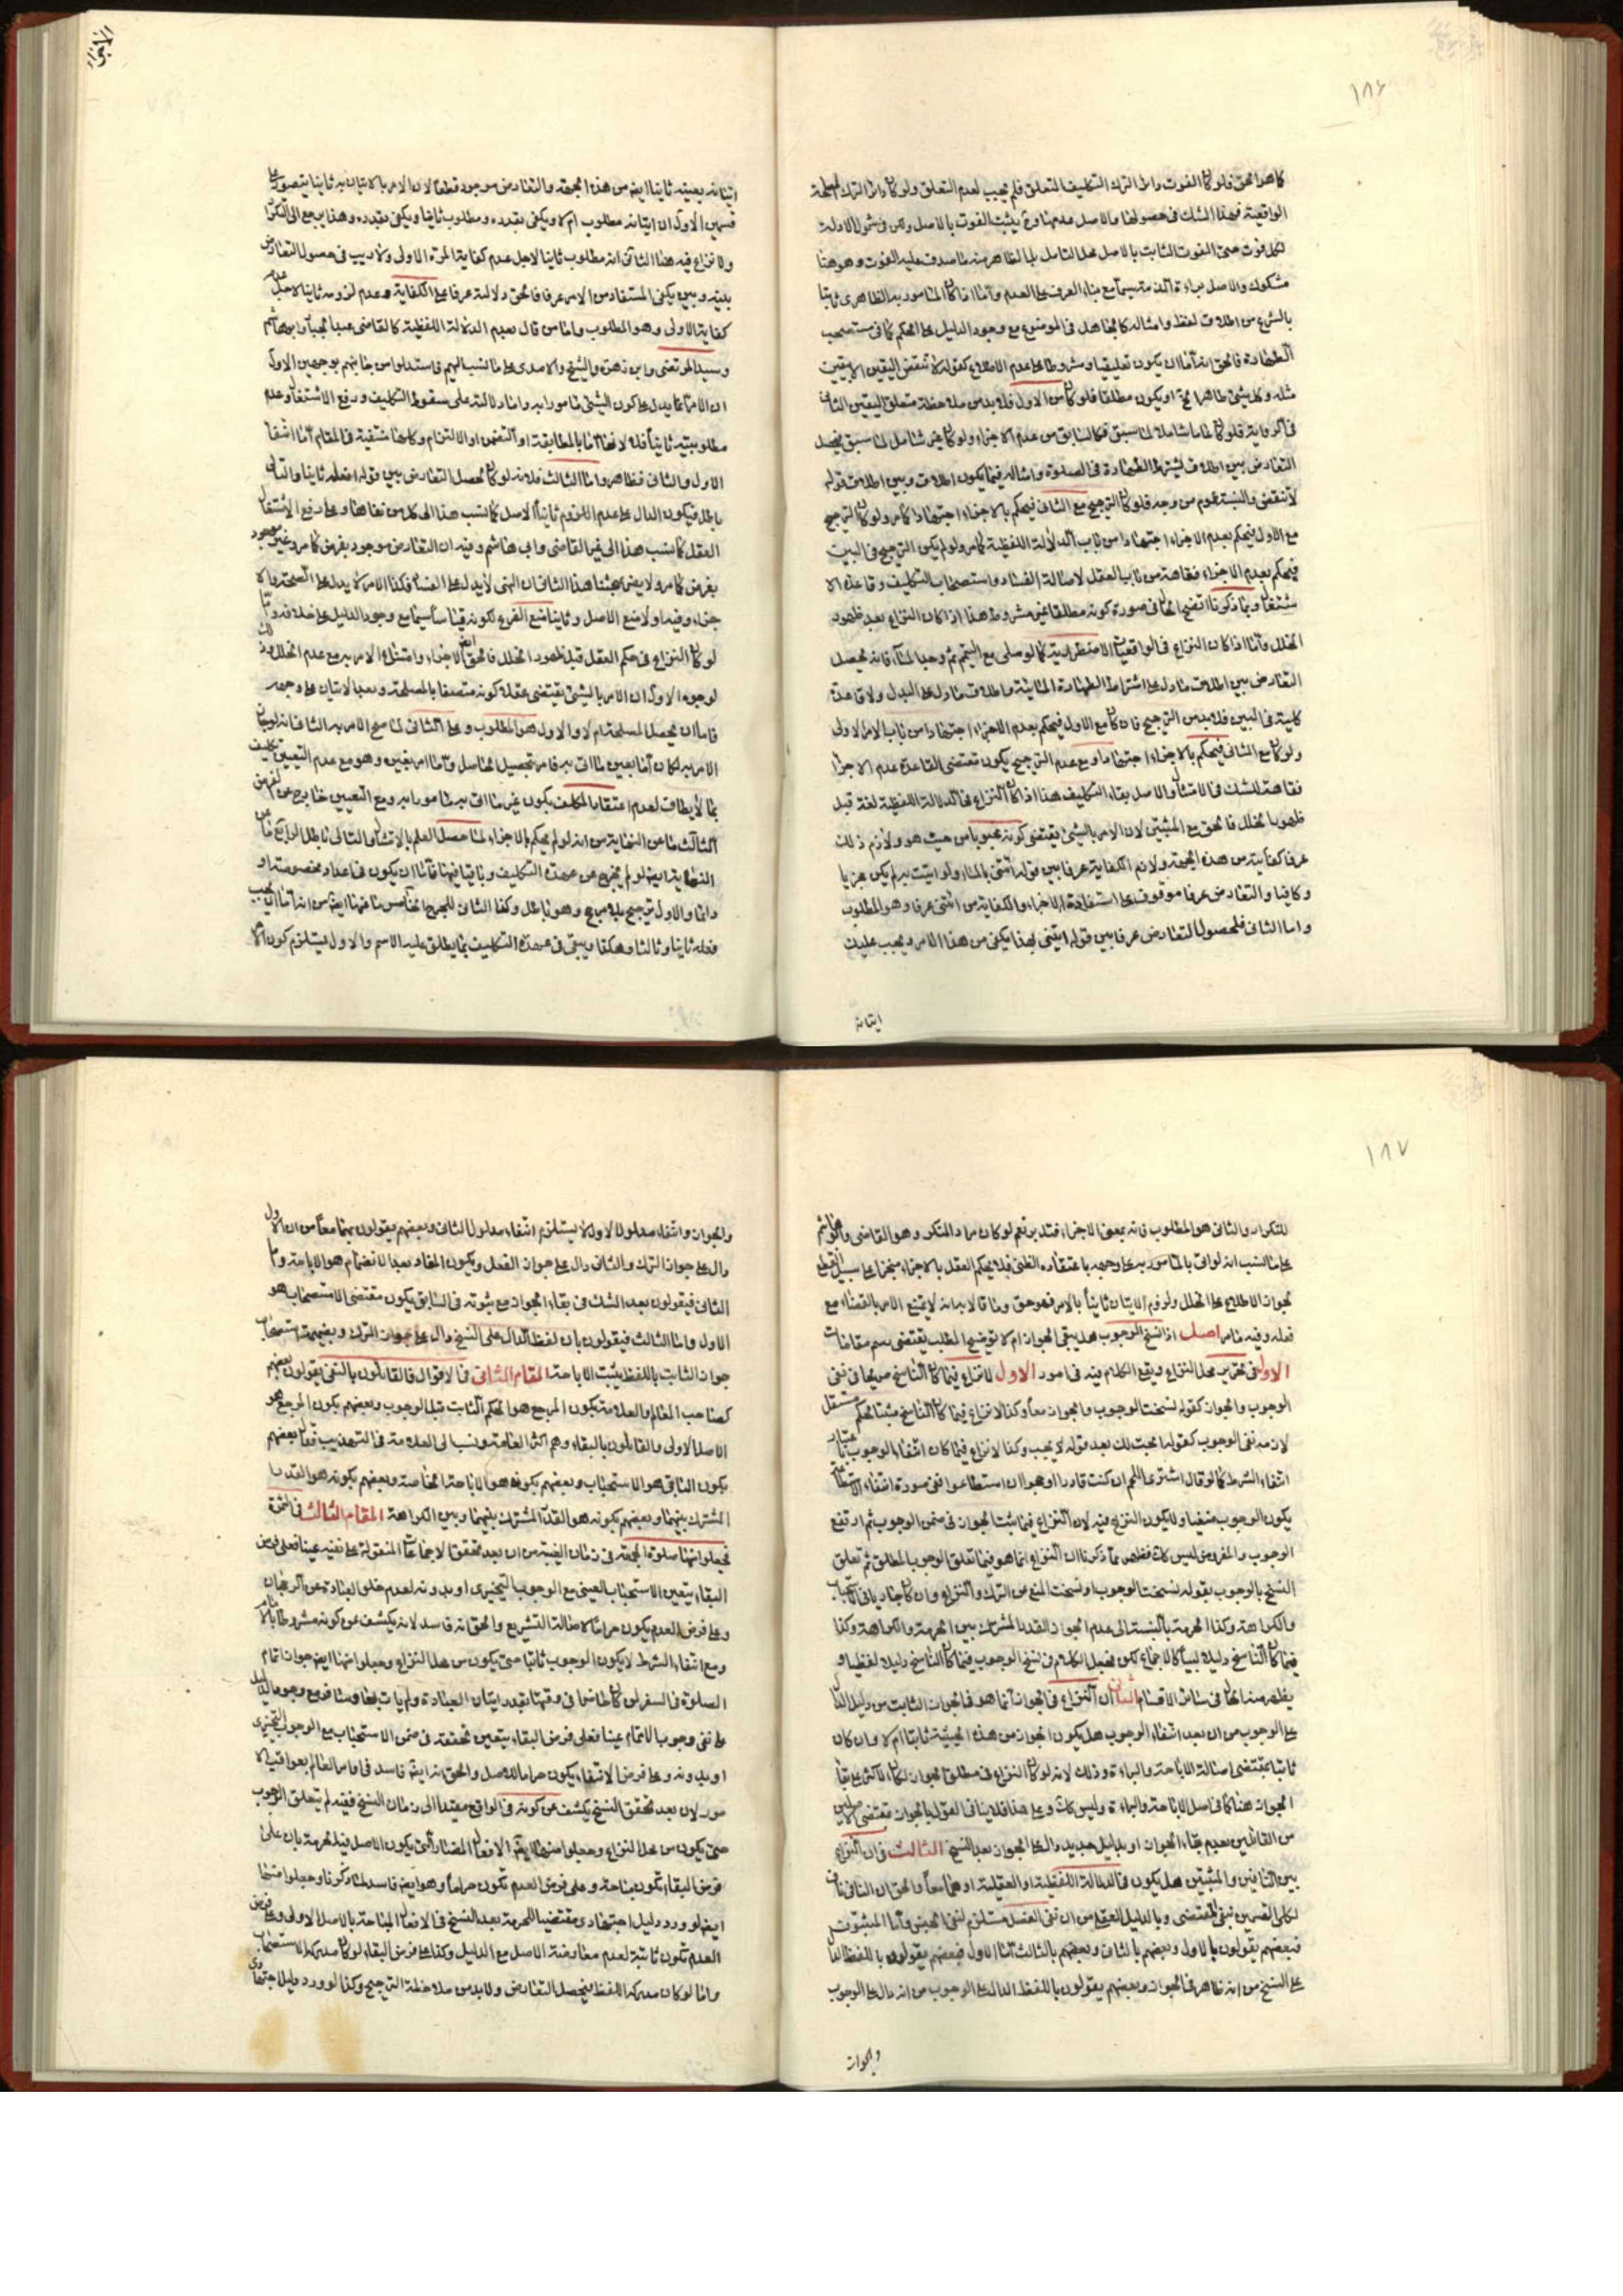 ١٨٦
كما هو الحق فلو كان الفوت دائرا الترك التكليف المتعلق فلم يجب لعدم التعلق ولو كان دائرا الترك المصلحة
الواقعية فهذا الشك في حصولها والاصل عدمها ودعوى يثبت الفوت بالاصل ولكن في شمول الادلة
لكل فوت حتى الفوت الثابت بالاصل محل التامل بل الظاهر منه ما صدق عليه الفوت وهو هنا
مشكوك والاصل براءة الذمة سيما مع بناء العرف على العدم واما اذا كان المامور به الظاهري ثابتا
بالشرع من اطلاق لفظ وامثاله كالجاهل في الموضوع مع وجود الدليل على الحكم كما في مستصحب
الطهارة فالحق انه اما ان يكون تعليقيا ومشروطا على عدم الاطلاع كقوله لا تنقض اليقين الا بيقين
مثله وكل شيء طاهر او يكون مطلقا فلو كان من الاول فلا بد من ملاحظة متعلق اليقين الثاني
التعارض بين اطلاق يشترط الطهارة في الصلوة وامثاله فيما يكون اطلاق وبين اطلاق قوله
لا تنقض والنسبة عموم من وجه فلو كان الترجيح مع الثاني فيحكم بالاجزاء اجتهادا كما مر ولو كان الترجيح
مع الاول فيحكم بعدم الاجزاء اجتهادا من باب الدلالة اللفظية كما مر ولو لم يكن الترجيح في البين
فيحكم بعدم الاجزاء فقاهة من باب العقل لاصالة الفساد واستصحاب التكليف وقاعدة الا
شتغال وبما ذكرنا اتضح الحال في صورة كونه مطلقا غير مشروط هذا اذا كان النزاع بعد ظهور
الخلل واما اذا كان النزاع في الواقعيات الاضطرارية كما لو صلى مع التيمم ثم وجد الماء فانه يحصل
التعارض بين اطلاق ما دل على اشتراط الطهارة المائية واطلاق ما دل على البدل ولا قاعدة
كلية في البين فلا بد من الترجيح فان كان مع الاول فيحكم بعدم الاجزاء اجتهادا من باب الامر الاولى
ولو كان مع الثاني فيحكم بالاجزاء اجتهادا ومع عدم الترجيح يكون مقتضى القاعدة عدم الاجزاء
فقاهة للشك في الامتثال والاصل بقاء التكليف هذا اذا كان النزاع في الدلالة اللفظية لغة قبل
ظهور الخلل فالحق مع المثبتين لان الامر بالشيء يقتضي كونه محبوبا من حيث هو ولازم ذلك
عرفا كفايته من هذه الجهة ولازم الكفاية عرفا بين قوله ائتني بالماء ولو اتيت به لم يكن مجزيا
وكافيا والتعارض عرفا موقوف على استفادة الاجزاء والكفاية من ائتني عرفا وهو المطلوب
واما الثاني فلحصول التعارض عرفا بين قوله ائتني بهذا يكفي من هذا الامر ويجب عليك
ايتانه
ايتانه بعينه ثانيا ايضا من هذه الجهة والتعارض موجود قطعا لان الامر بالاتيان به ثانيا يتصور على
قسمين الاول ان ايتانه مطلوب ام لا ويكفي بقدره ومطلوب ثانيا ويكفي بقدره وهذا يرجع الى التكرار
ولا نزاع فيه هنا الثاني انه مطلوب ثانيا لاجل عدم كفاية المرة الاولى ولا ريب في حصول التعارض
بينه وبين يكفي المستفاد من الامر عرفا فالحق دلالته عرفا على الكفاية وعدم لزومه ثانيا لاجل عدم
كفاية الاولى وهو المطلوب واما من قال بعدم الدلالة اللفظية كالقاضي عبد الجبار وابي هاشم
وسيد المرتضى وابن زهرة والشيخ والامدي على ما نسب اليهم فاستدلوا من جانبهم بوجهين الاول
ان الامر انما يدل على كون الشيء مامورا به واما دلالته على سقوط التكليف ورفع الاشتغال وعدم
مطلوبيته ثانيا فلا لانها اما بالمطابقة او التضمن او الالتزام وكلها منتفية في المقام اما انتفاء
الاول والثاني فظاهر واما الثالث فلانه لو كان لحصل التعارض بين قوله افعله ثانيا والتالي
باطل فيكون الدال على عدم اللزوم ثانيا الاصل كما نسب هذا الى كل من نفاها وعلى رفع الاشتغال
العقل كما ينسب هذا الى غير القاضي وابي هاشم وفيه ان التعارض موجود بفرض كما مر وغير موجود
بفرض كما مر ولا يضر بحثنا هذا الثاني ان النهي لا يدل على الفساد فكذا الامر لا يدل على الصحة والا
جزاء وفيه اولا منع الاصل وثانيا منع الفرع لكونه قياسا سيما مع وجود الدليل على خلافه واما
لو كان النزاع في حكم العقل قبل ظهور الخلل فالحق ايضا الاجزاء وامتثال الامر به مع عدم الخلل وذلك
لوجوه الاول ان الامر بالشيء يقتضي عقلا كونه متصفا بالمصلحة وبعد الاتيان على وجهه
فاما ان يحصل المصلحة ام لا والاول هو المطلوب وعلى الثاني لما صح الامر به الثاني انه لو بقي
الامر به لكان اما بعين ما اتى به فامر بتحصيل الحاصل واما امر بغيره وهو مع عدم التعيين تكليف
بما لا يطاق لعدم اعتقاد المكلف بكون غير ما اتى به مامورا به ومع التعيين خارج عن الفرض
الثالث ما عن النهاية من انه لو لم يحكم بالاجزاء لما حصل العلم بالامتثال والتالي باطل الرابع ما عن
النهاية ايضا لو لم يخرج عن عهدة التكليف وباقيا فيها فاما ان يكون في اعداد مخصوصة او
دائما والاول ترجيح بلا مرجح وهو باطل وكذا الثاني للحرج الخامس ما عنها ايضا من انه اما ان يجب
فعله ثانيا وثالثا وهكذا ويبقى في عهدة التكليف بما يطلق عليه الاسم والاول يستلزم كون الامر
١٨٧
للتكرار والثاني هو المطلوب فانه بمعنى الاجزاء فتدبر نعم لو كان مراد المنكر وهو القاضي وابو هاشم
على ما نسب انه لو اتى بالمامور به على وجهه باعتقاده الظني فلا يحكم العقل بالاجزاء منجزا على سبيل القطع
لجواز الاطلاع على الخلل ولزوم الاتيان ثانيا بالامر فهو حق وما قالا بانه لا يمتنع الامر بالقضاء مع
فعله وفيه ما مر اصل اذا نسخ الوجوب هل يبقى الجواز ام لا توضيح المطلب يقتضي رسم مقامات
الاول في تحرير محل النزاع ويقع الكلام فيه في امور الاول لا نزاع فيما كان الناسخ صريحا في نفي
الوجوب والجواز كقوله نسخت الوجوب والجواز معا وكذا لا نزاع فيما كان الناسخ مثبتا لحكم مستقل
لازمه نفي الوجوب كقوله ابحت لك بعد قوله لا يجب وكذا لا نزاع فيما كان انتفاء الوجوب باعتبار
انتفاء الشرط كما لو قال اشتر اللحم ان كنت قادرا او هو ان استطاعوا ففي صورة انتفاء الاستطاعة
يكون الوجوب منفيا ولا يكون النزاع فيه لان النزاع فيما ثبت الجواز في ضمن الوجوب ثم ارتفع
الوجوب والمفروض ليس كذلك فظهر مما ذكرنا ان النزاع انما هو فيما تعلق الوجوب المطلق ثم تعلق
النسخ بالوجوب بقوله نسخت الوجوب او نسخت المنع عن الترك والنزاع وان كان جاريا في الاستحباب
والكراهة وكذا الحرمة بالنسبة الى عدم الجواز القدر المشترك بين الحرمة والكراهة وكذا
فيما كان الناسخ دليلا لبيا كالاجماع لكن نجعل الكلام في نسخ الوجوب فيما كان الناسخ دليلا لفظيا و
يظهر منه الحال في سائر الاقسام الثاني ان النزاع في الجواز انما هو في الجواز الثابت من دليل الدال
على الوجوب من ان بعد انتفاء الوجوب هل يكون الجواز من هذه الحيثية ثابتا ام لا وان كان
ثابتا بمقتضى اصالة الاباحة والبراءة وذلك لانه لو كان النزاع في مطلق الجواز لكان الاكثر على بقاء
الجواز هنا كما في اصل الاباحة والبراءة وليس كذلك وعلى هذا فلا ينافي القول بالجواز بمقتضى الاصلين
من القائلين بعدم بقاء الجواز او بدليل جديد دال على الجواز بعد النسخ الثالث في ان النزاع
بين النافين والمثبتين هل يكون في الدلالة اللفظية او العقلية او هما معا والحق ان النافي ناف
لكل القسمين بنفي المقتضي وبالدليل العقلي من ان نفي الفصل مستلزم لنفي الجنس واما المثبتون
فبعضهم يقولون بالاول وبعضهم بالثاني وبعضهم بالثالث اما الاول فبعضهم يقولون باللفظ الدال
على النسخ من انه ظاهر في الجواز وبعضهم يقولون باللفظ الدال على الوجوب من انه دال على الوجوب
والجواز
والجواز وانتفاء مدلول الاول لا يستلزم انتفاء مدلول الثاني وبعضهم يقولون بهما معا من ان الاول
دال على جواز الترك والثاني دال على جواز الفعل ويكون المفاد بعد الانضمام هو الاباحة واما
الثاني فيقولون بعد الشك في بقاء الجواز مع ثبوته في السابق يكون مقتضى الاستصحاب هو
الاول واما الثالث فيقولون بان لفظ الدال على النسخ دال على جواز الترك وبضميمة استصحاب
جواز الثابت باللفظ يثبت الاباحة المقام الثاني في الاقوال فالقائلون بالنفي يقولون بعضهم
كصاحب المعالم والعلامة بكون المرجع هو الحكم الثابت قبل الوجوب وبعضهم بكون المرجع هو
الاصل الاولى والقائلون بالبقاء وهم اكثر العامة ونسب الى العلامة في التهذيب فقال بعضهم
بكون الباقي هو الاستحباب وبعضهم بكونه هو الاباحة الخاصة وبعضهم بكونه هو القدر
المشترك بينهما وبعضهم بكونه هو القدر المشترك بينهما وبين الكراهة المقام الثالث في الثمرة
فجعلوا منها صلوة الجمعة في زمان الغيبة من ان بعد تحقق الاجماعات المنقولة على نفيه عينا فعلى فرض
البقاء يتعين الاستحباب العيني مع الوجوب التخييري او بدونه لعدم خلو العبادة عن الرجحان
وعلى فرض العدم يكون حراما لاصالة التشريع والحق انه فاسد لانه يكشف عن كونه مشروطا بالامام
ومع انتفاء الشرط لا يكون الوجوب ثابتا حتى يكون من محل النزاع وجعلوا منها ايضا جواز اتمام
الصلوة في السفر لمن كان حاضرا في وقتها بقدر ايتان العبادة ولم يات بها وسافر مع وجود الدليل
على نفي وجوب الاتمام عينا فعلى فرض البقاء يتعين تحققه في ضمن الاستحباب مع الوجوب التخييري
او بدونه وعلى فرض الانتفاء يكون حراما للاصل والحق انه ايضا فاسد
مور لان بعد تحقق النسخ يكشف عن كونه في الواقع مقيدا الى زمان النسخ ففيه لم يتعلق الوجوب
حتى يكون من محل النزاع وجعلوا منها ايضا الافعال المضارة التي يكون الاصل فيها الحرمة بان على
فرض البقاء تكون مباحة وعلى فرض العدم تكون حراما وهو ايضا فاسد لما ذكرنا وجعلوا منها
ايضا لو ورد دليل اجتهادي مقتضيا للحرمة بعد النسخ في الافعال المباحة بالاصل الاولى وعلى فرض
العدم تكون ثابتة لعدم معارضة الاصل مع الدليل وكذا على فرض البقاء لو كان مدركه الاستصحاب
واما لو كان مدركه اللفظ فيحصل التعارض ولا بد من ملاحظة الترجيح وكذا لو ورد دليل اجتهادي